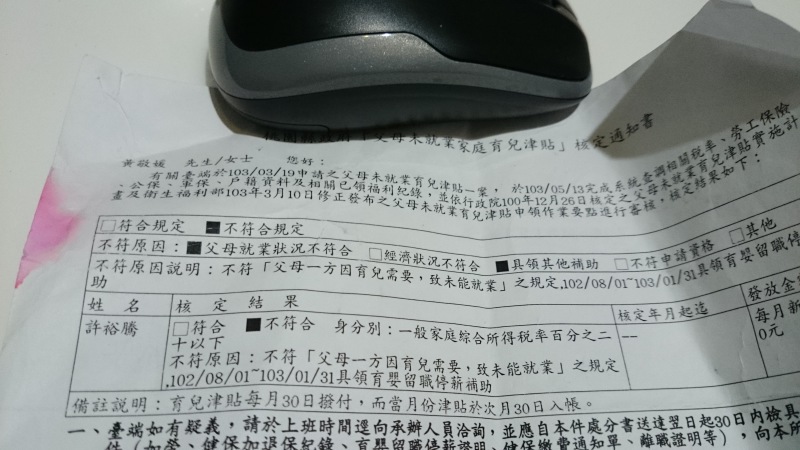 「父母未就業家庭育兒津貼」核定通知書
黃敬媛 先生/女士 您好：
有關臺端於103/03/19申請之父母未就業育兒津貼一案，於103/05/13完成系統查調相關稅率、勞工保險
、公保、軍保、戶籍資料及相關已領福利紀錄，並依行政院100年12月26日核定之父母未就業育兒津貼實施計
畫及衛生福利部103年3月10日修正發布之父母未就業育兒津貼申領作業要點進行審核，核定結果如下：
□符合規定 ■不符合規定
不符原因：■父母就業狀況不符合 □經濟狀況不符合 ■具領其他補助 □不符申請資格 □其他
不符原因說明：不符「父母一方因育兒需要，致未能就業」之規定,102/08/01~103/01/31具領育嬰留職停
助
姓 名 核 定 結 果 核定年月起迄 發放金
許裕騰 □符合 ■不符合 身分別：一般家庭綜合所得稅率百分之二 -- 每月新
十以下 0元
不符原因：不符「父母一方因育兒需要，致未能就業」之規定
,102/08/01~103/01/31具領育嬰留職停薪補助
備註說明：育兒津貼每月30日撥付，而當月份津貼於次月30日入帳。
一、臺端如有疑義，請於上班時間逕向承辦人員洽詢，並應自本件處分書送達翌日起30日內檢具
件（如勞、健保加退保紀錄、育嬰留職停薪證明、健保繳費通知單、離職證明等），向本所